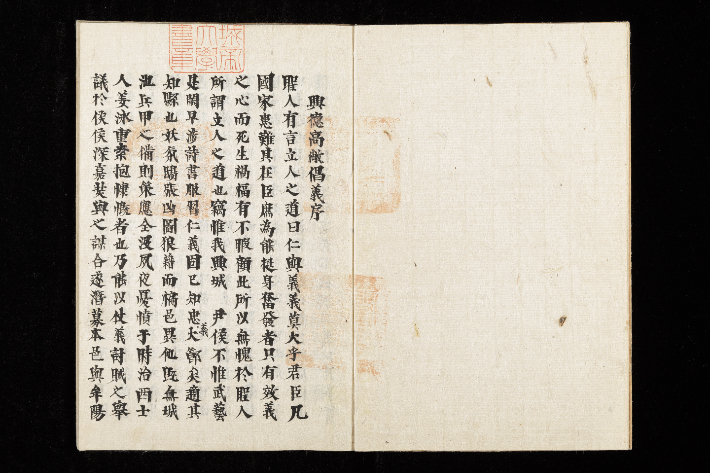 興德高敞倡義序
聖人有言立人之道曰仁與義義莫大乎君臣凡
國家患難其在臣庶為能挺身奮發者只有效義
之心而死生禍福有不暇顧此所以無愧於聖人
所謂立人之道也竊惟我興城 尹侯不惟武藝
是閑早涉詩書服習仁義固已知忠大義矣逎其
知縣也妖氛鴟張凶圖狼藉而獨邑異他既無城
池兵甲之備則策應全沒夙夜憂憤于時治西士
人姜泳重素抱慷慨者也乃能以仗義討賊之擧
議於侯侯深嘉奬與之謀合遂潛募本邑與牟陽